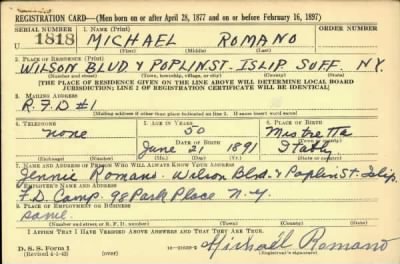 REGISTRATION CARD—(Men born on or after April 28, 1877 and on or before February 16, 1897)
SERIAL NUMBER 1. NAME (Print) ORDER NUMBER
U 1818 MICHAEL ROMANO
(First) (Middle) (Last)
2. PLACE OF RESIDENCE (Print)
WILSON BLVD & POPLINST. ISLIP SUFF. N.Y.
(Number and street) (Town, township, village, or city) (County) (State)
[THE PLACE OF RESIDENCE GIVEN ON THE LINE ABOVE WILL DETERMINE LOCAL BOARD
JURISDICTION; LINE 2 OF REGISTRATION CERTIFICATE WILL BE IDENTICAL]
3. MAILING ADDRESS
R.F.D #1
(Mailing address if other than place indicated on line 2. If same insert word same)
4. TELEPHONE 5. AGE IN YEARS 6. PLACE OF BIRTH
none 50 Mistretta
DATE OF BIRTH (Town or county)
June 21 1891 Italy
(Exchange) (Number) (Mo.) (Day) (Yr.) (State or country)
7. NAME AND ADDRESS OF PERSON WHO WILL ALWAYS KNOW YOUR ADDRESS
Jennie Romano Wilson Blvd. & Poplin St. Islip.
8. EMPLOYER'S NAME AND ADDRESS
F.D. Camp. 98 Park Place N.Y.
9. PLACE OF EMPLOYMENT OR BUSINESS
same.
(Number and street or R. F. D. number) (Town) (County) (State)
I AFFIRM THAT I HAVE VERIFIED ABOVE ANSWERS AND THAT THEY ARE TRUE.
D. S. S. Form 1 Michael Romano
(Revised 4-1-42) (over) (Registrant's signature)